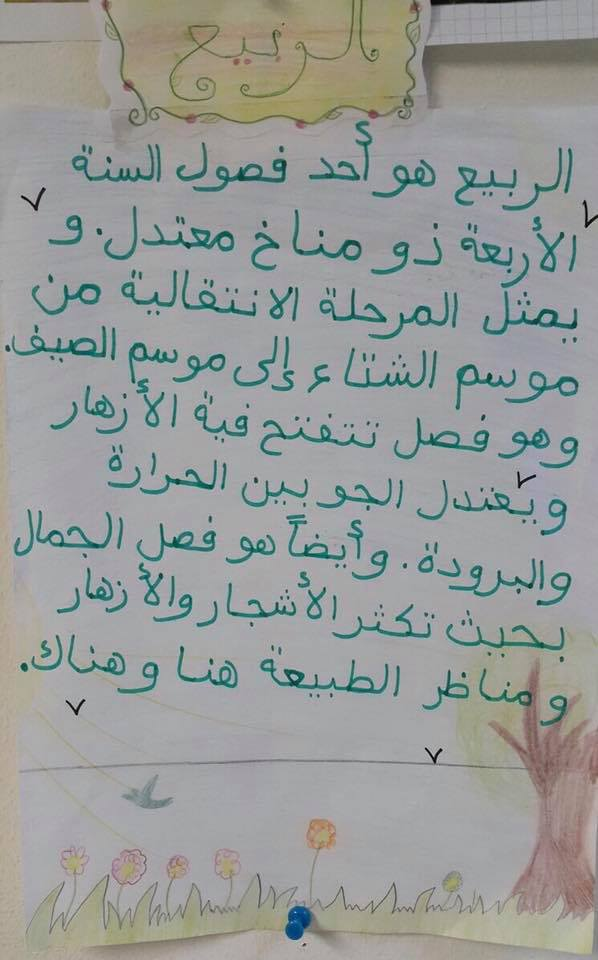 الربيع
الربيع هو أحد فصول السنة
الأربعة ذو مناخ معتدل. و
يمثل المرحلة الانتقالية من
موسم الشتاء إلى موسم الصيف.
وهو فصل تتفتح فية الأزهار
ويعتدل الجو بين الحرارة
والبرودة. وأيضاً هو فصل الجمال
بحيث تكثر الأشجار والأزهار
ومناظر الطبيعة هنا وهناك.